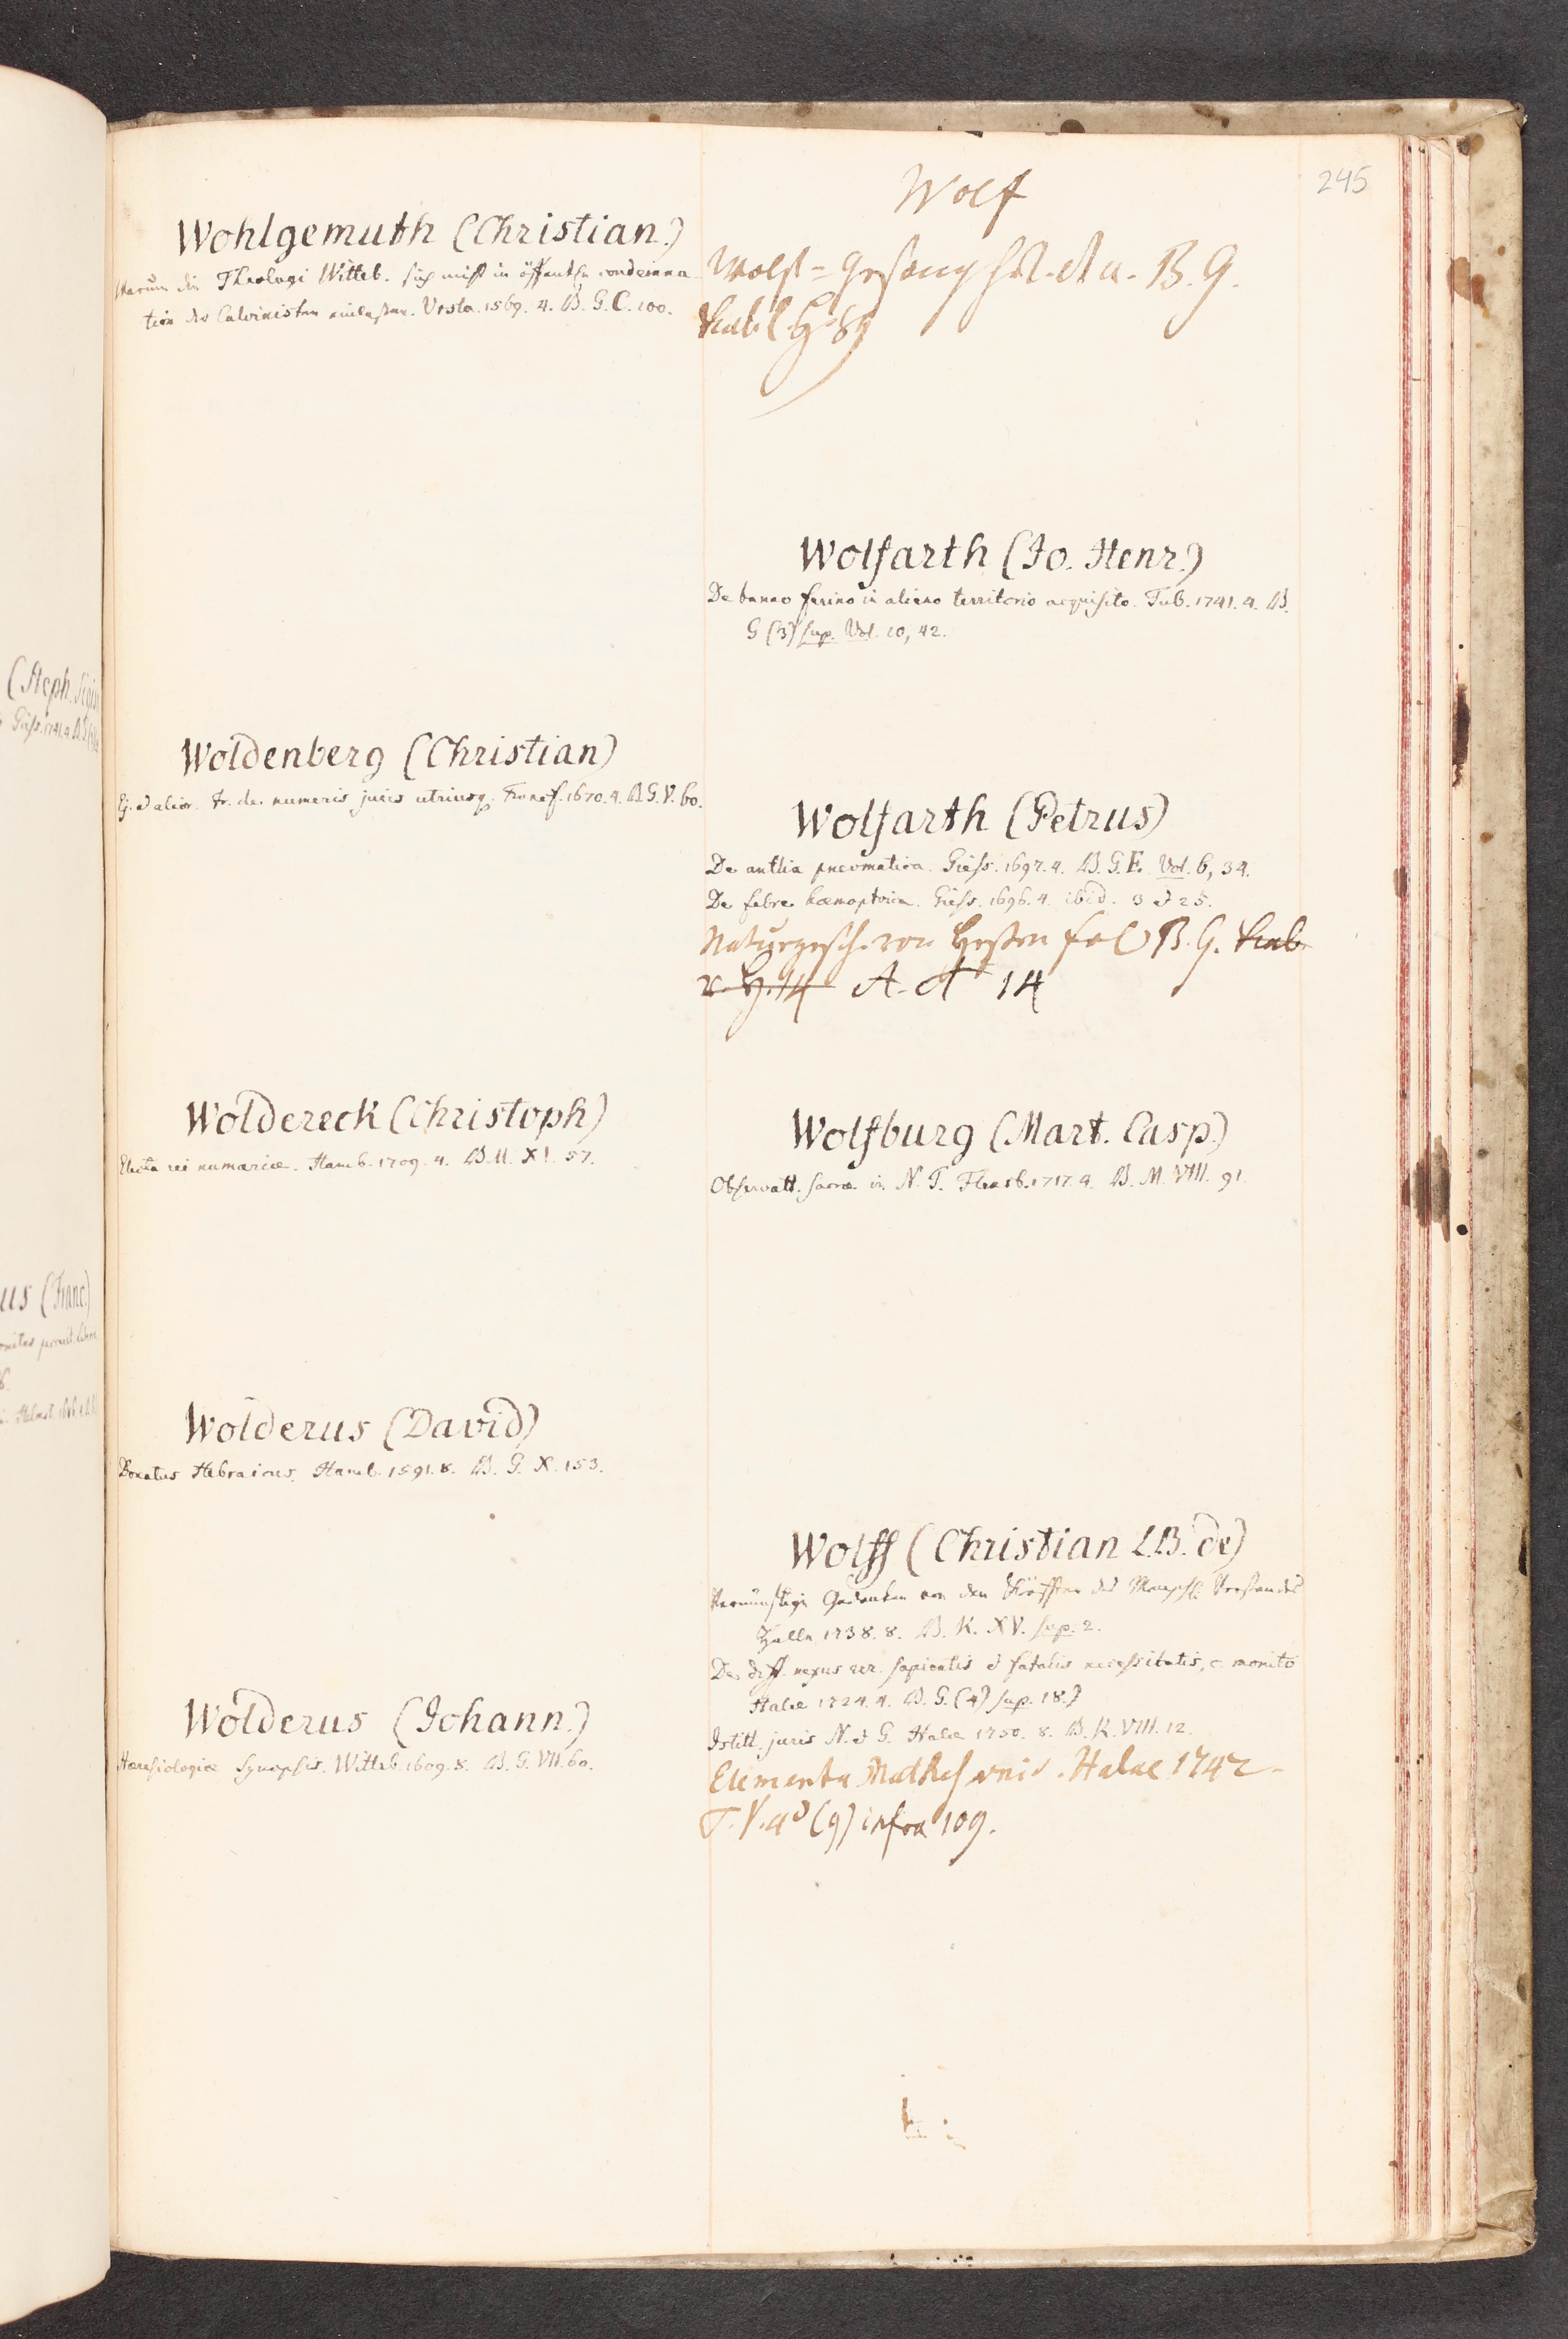 245
Wohlgemuth (Christian.)
Warum die Theologi Witteb. sich nicht in öffentln condemna
tion der Calvinisten einlaßen. Ursla. 1569. 4. B. G. C. 100.
Woldenberg (Christian)
Ej. & alior. tr. de numeris juris utriusq. Francf. 1670. 4. B. G. V. 60.
Woldereck (Christoph)
Electa rei numariæ. Hamb. 1709. 4. B. U. XI. 57.
Wolderus (David)
Donatus Hebraicus. Hamb. 1591. 8. B. G. X. 153.
Wolderus (Johann.)
Hæresiologiæ Synopsis. Witteb. 1609. 8. B. G. VII. 60.
Wolf
Wolfs=gesang B. G.
89
Wolfarth (Jo. Henr.)
De banno ferino in alieno territorio acquisito. Tub. 1741. 4. B.
G (3) sup. Vol. 10, 42.
Wolfarth (Petrus)
De antlia pnevmatica. Giess. 1697. 4. B. G. E. Vol. 6, 34.
De febre hæmoptoica. Giess. 1696. 4. ibid. 3 & 25.
Naturgesch. von Heßen fol B. G.
14 A. A 14
Wolfburg (Mart. Casp.)
Observatt. sacræ in N. T. Flensb. 1717. 4. B. M. VIII. 91.
Wolff (Christian L.B. de)
Vernünftige Gedanken von den Kräfften des Menschl. Verstandes
Halle 1738. 8. B. K. XV. sup. 2.
De diff. nexus rer. sapientis & fatalis necessitatis, c. monito
Halæ 1724. 4. B. G. (4) sup. 18.)
Istitt. juris N. & G. Halæ 1750. 8. B. K. VIII. 12.
Elementa Mathes univ. Halae 1742.
T. V. ad (9) infra 109.